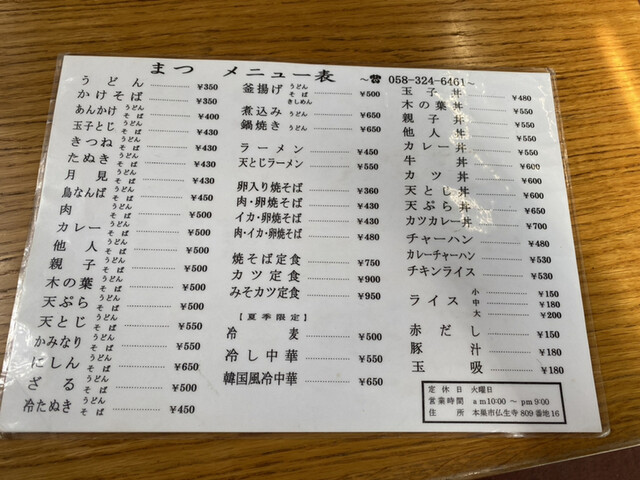 まつ メニュー表 ～☎ 058-324-6461～
うどん ¥350
かけそば ¥350
あんかけ うどん そば ¥400
玉子とじ うどん そば ¥430
きつね うどん そば ¥430
たぬき うどん そば ¥430
月見 うどん そば ¥430
鳥なんば うどん そば ¥450
肉 うどん そば ¥500
カレー うどん そば ¥500
他人 うどん そば ¥500
親子 うどん そば ¥500
木の葉 うどん そば ¥500
天ぷら うどん そば ¥550
天とじ うどん そば ¥550
かみなり うどん そば ¥550
にしん うどん そば ¥650
ざる うどん そば ¥500
冷たぬき うどん そば ¥450
釜揚げ うどん そば きしめん ¥500
煮込み うどん ¥650
鍋焼き うどん ¥650
ラーメン ¥450
天とじラーメン ¥550
卵入り焼そば ¥360
肉・卵焼そば ¥430
イカ・卵焼そば ¥430
肉・イカ・卵焼そば ¥480
焼そば定食 ¥750
カツ定食 ¥900
みそカツ定食 ¥950
【夏季限定】
冷麦 ¥500
冷し中華 ¥650
韓国風冷中華 ¥650
玉子丼 ¥480
木の葉丼 ¥550
親子丼 ¥550
他人丼 ¥550
カレー丼 ¥550
牛丼 ¥600
カツ丼 ¥600
天とじ丼 ¥600
天ぷら丼 ¥650
カツカレー丼 ¥700
チャーハン ¥480
カレーチャーハン ¥530
チキンライス ¥530
ライス 小 ¥150
中 ¥180
大 ¥200
赤だし ¥150
豚汁 ¥180
玉吸 ¥180
定休日 火曜日
営業時間 am10:00～pm9:00
住所 本巣市仏生寺809番地16